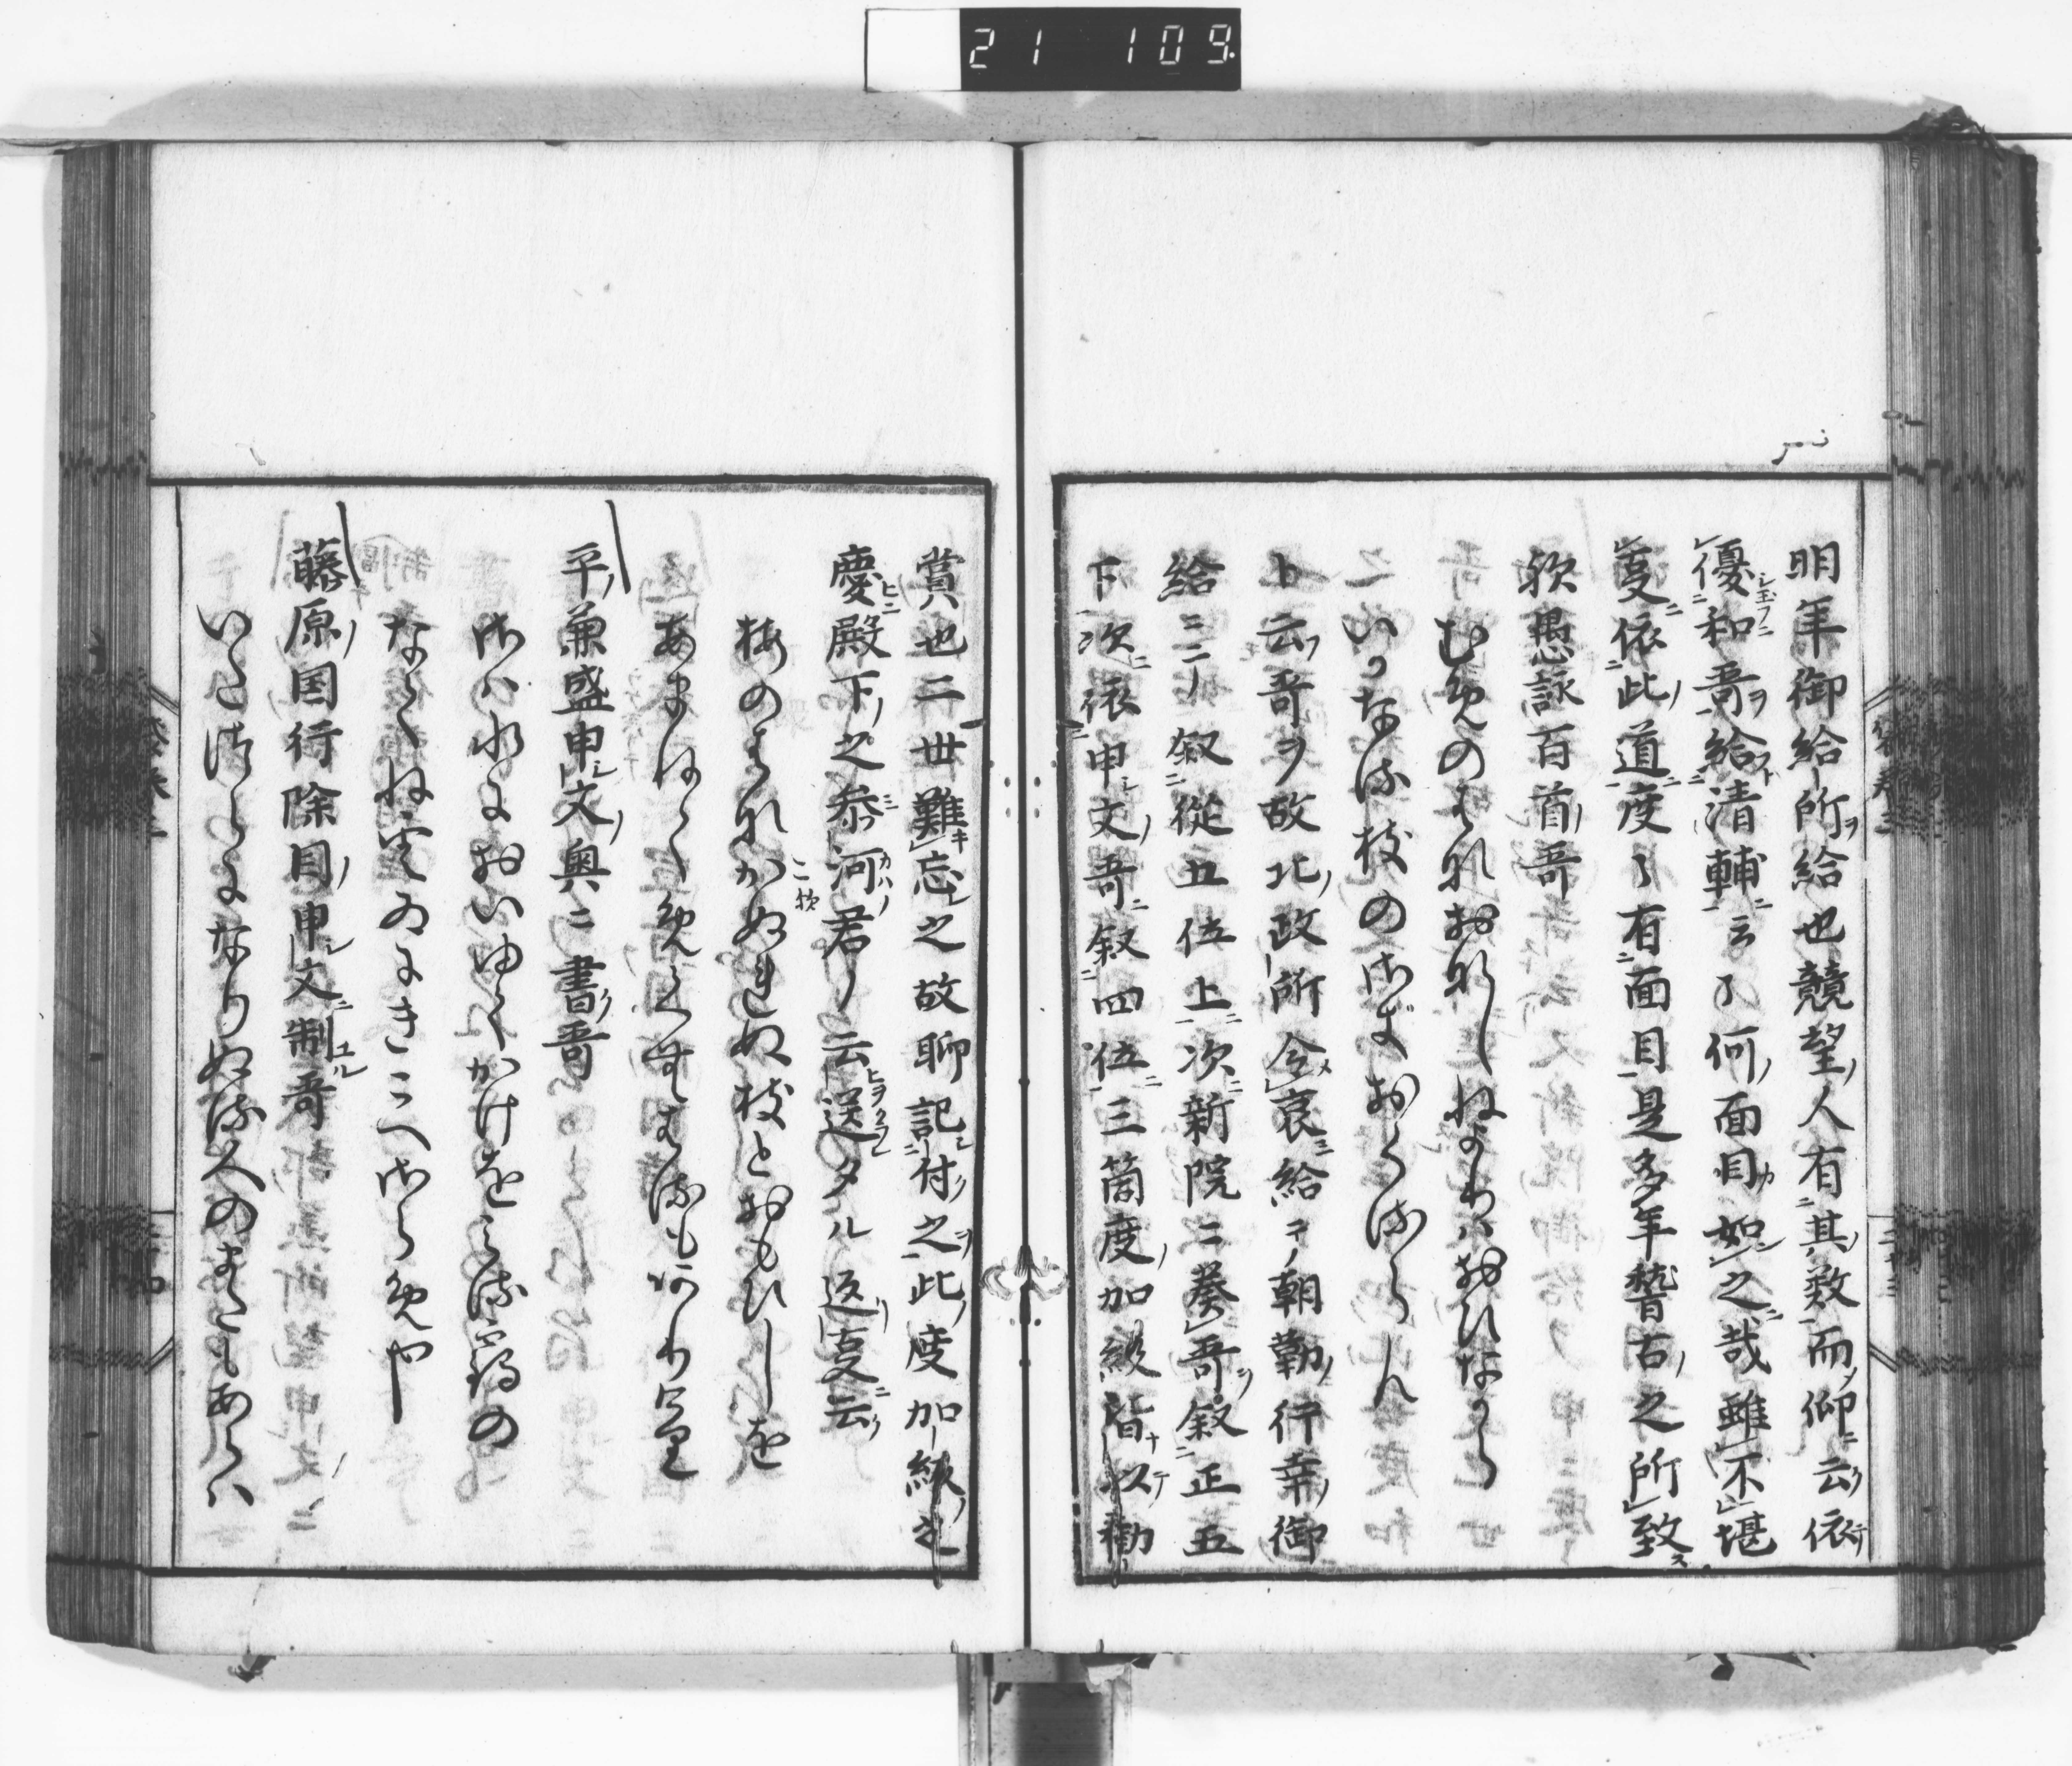 21 109
明年御給所給也競望人有其数而仰云依
優和哥給清輔云了何面目如之哉雖不堪
事依此道度々有面目是多年誓古之所致
欤愚詠百首哥
むめの花おなしねよりはおひなから
いかなる枝のさきおくるらん
上云哥ヲ故北政所令哀給コノ朝勤行幸御
給ニ二ノ叙従五位上次新院ニ葵哥叙正五
下次依申文哥叙四位三箇度加級皆以勧
賞也二世難忘之故聊記付之此度加級之
慶殿下之参河君ノ云送タル返事云
梅の花かれぬる枝とおもひしを
あまねくめくむ
平兼盛申文奥ニ書哥
さは水においゆくかけをみる鶴の
なくね雲ゐにきこへさらめや
藤原国行除目申文制哥
いたつらになりぬる人のまたもあらは